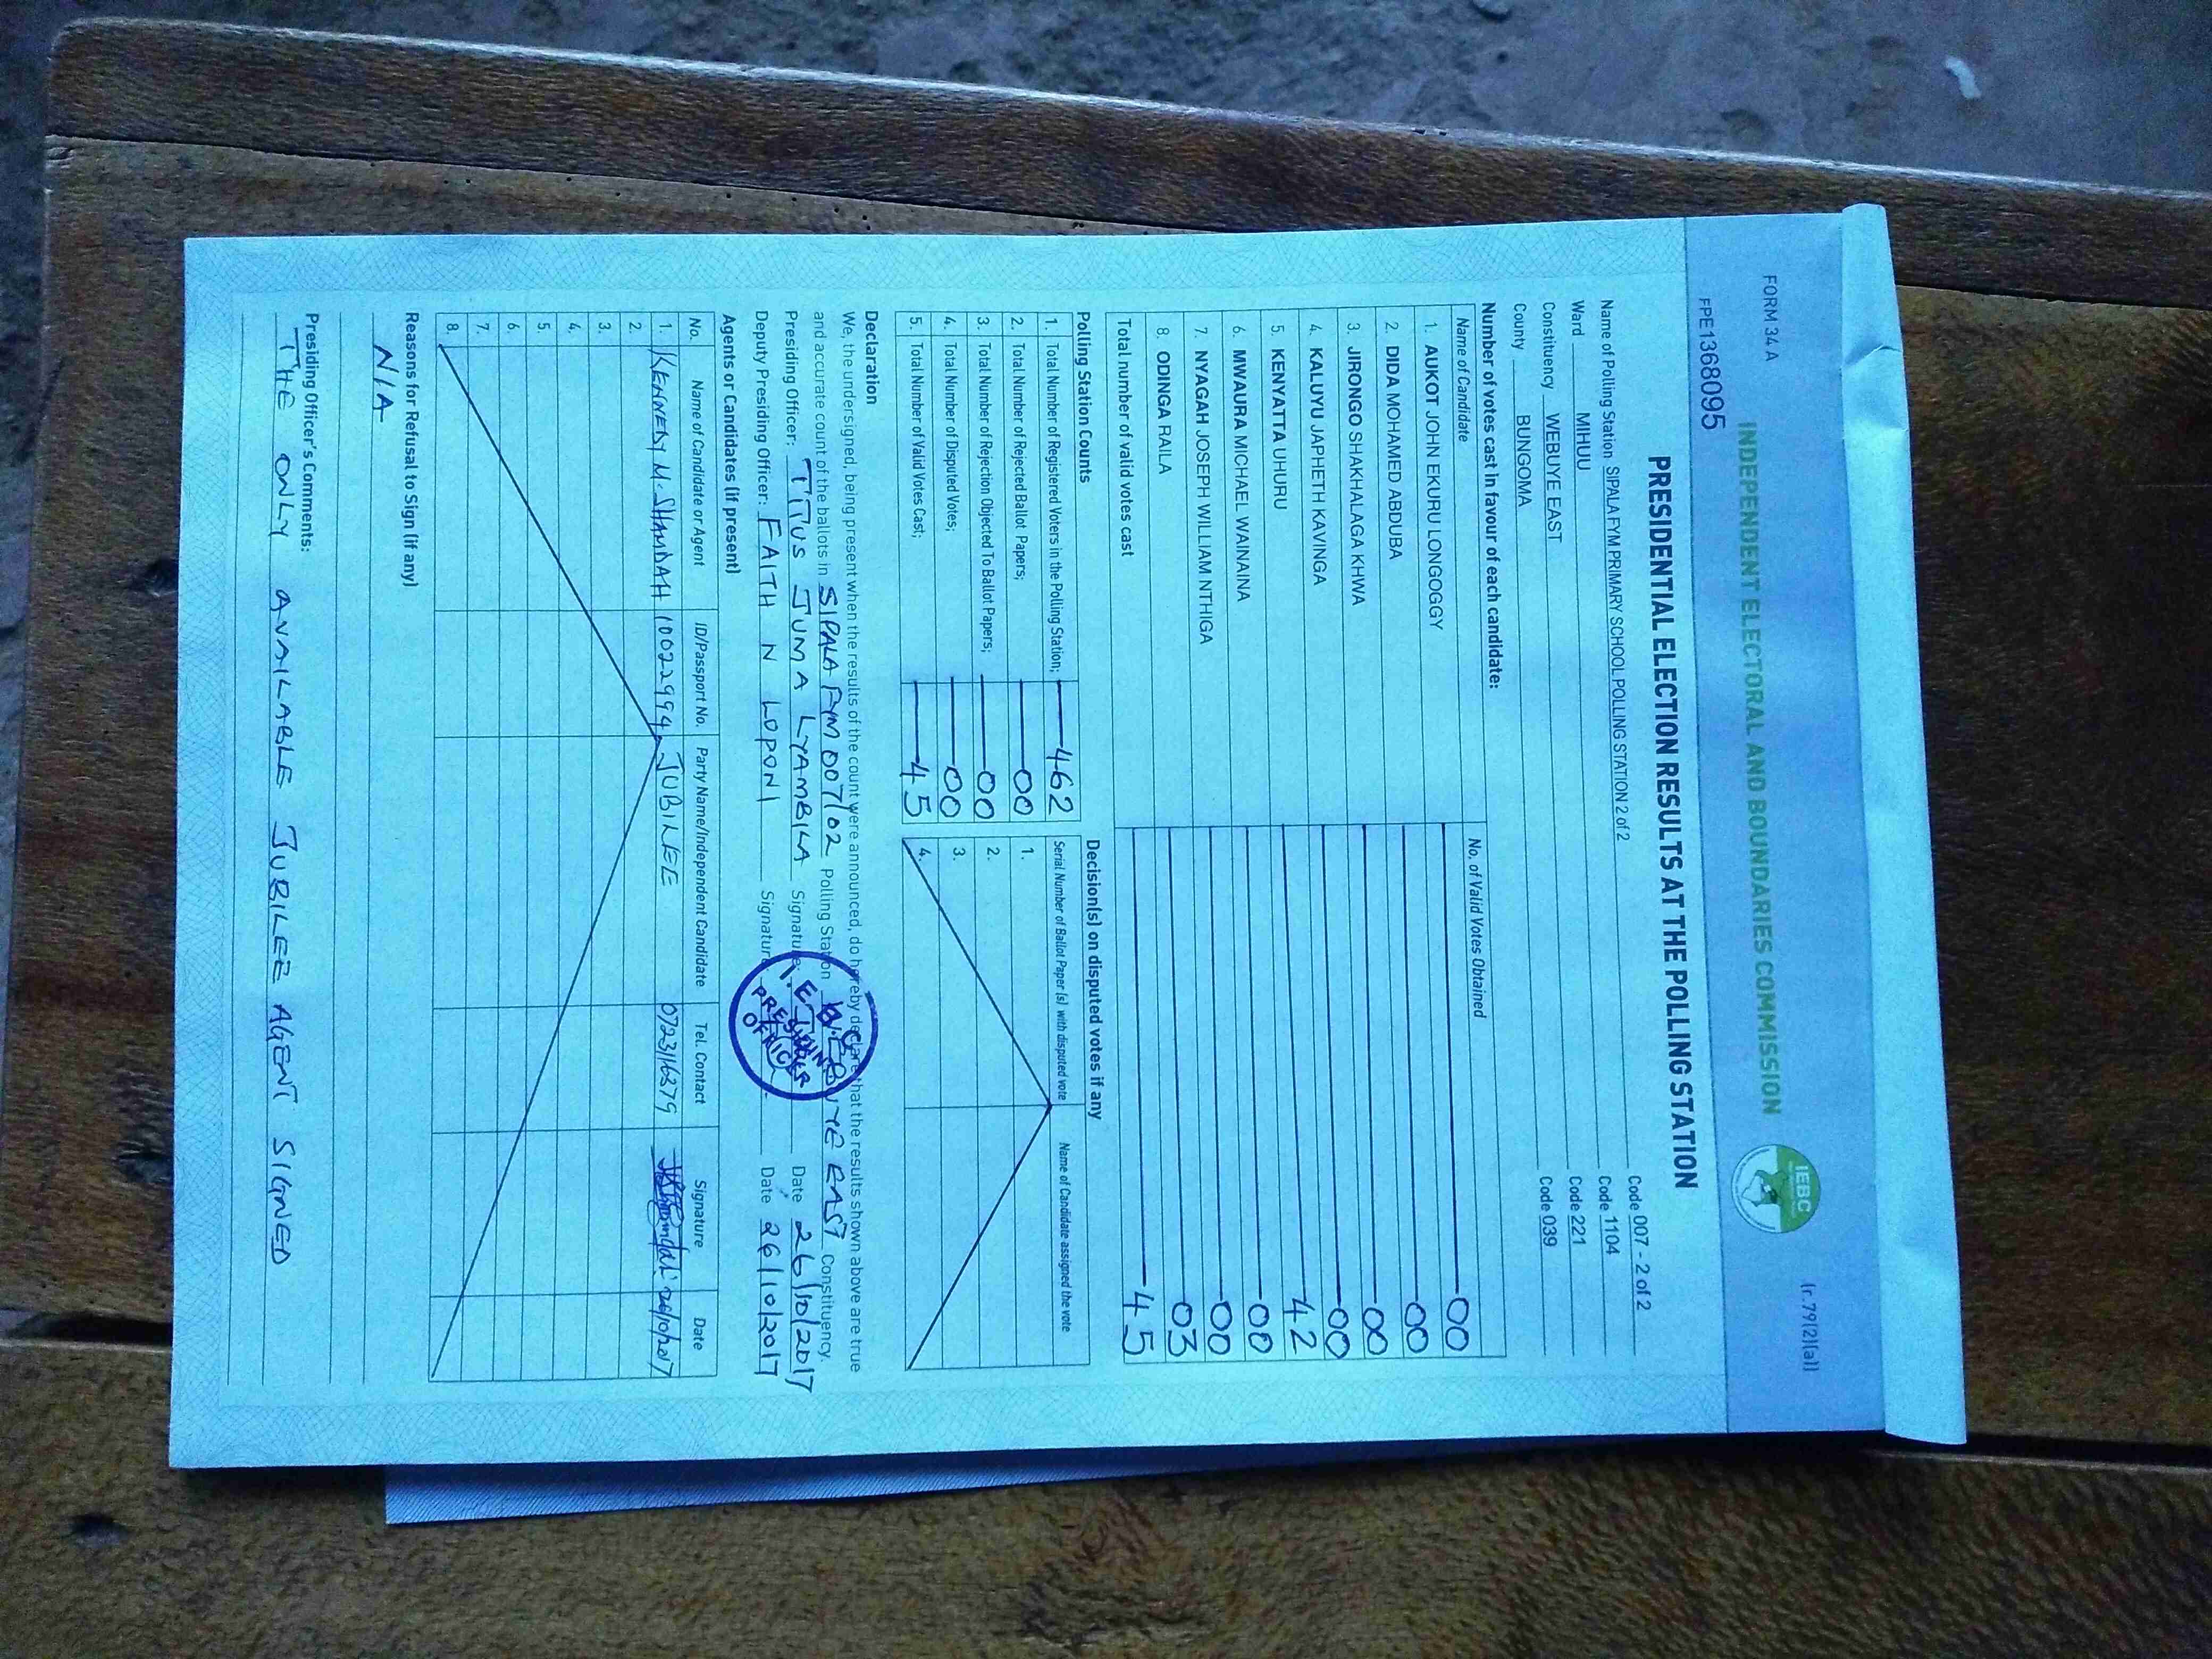 FORM 34 A
(r.79(2)(a))
INDEPENDENT ELECTORAL AND BOUNDARIES COMMISSION
IEBC
FPE1368095
PRESIDENTIAL ELECTION RESULTS AT THE POLLING STATION
Name of Polling Station SIPALA FYM PRIMARY SCHOOL POLLING STATION 2 of 2 Code 007 - 2 of 2
Ward MIHUU Code 1104
Constituency WEBUYE EAST Code 2221
County BUNGOMA Code 039
Number of votes cast in favour of each candidate:
Name of Candidate No. of Valid Votes Obtained
1. AUKOT JOHN EKURU LONGOGGY 00
2. DIDA MOHAMED ABDUBA 00
3. JIRONGO SHAKHALAGA KHWA 00
4. KALUYU JAPHETH KAVINGA 00
5. KENYATTA UHURU 42
6. MWAURA MICHAEL WAINAINA 00
7. NYAGAH JOSEPH WILLIAM NTHIGA 00
8. ODINGA RAILA 03
Total number of valid votes cast 45
Polling Station Counts
1. Total Number of Registered Voters in the Polling Station; 462
2. Total Number of Rejected Ballot Papers; 00
3. Total Number of Rejection Objected To Ballot Papers; 00
4. Total Number of Disputed Votes; 00
5. Total Number of Valid Votes Cast; 45
Decision(s) on disputed votes if any
Serial Number of Ballot Paper (s) with disputed vote Name of Candidate assigned the vote
1.
2.
3.
4.
Declaration
We, the undersigned, being present when the results of the count were announced, do hereby declare that the results shown above are true
and accurate count of the ballots in SIPALA FYM 007/02 Polling Station WEBUYE EAST Constituency.
Presiding Officer: TITUS JUMA LYAMBILA Signature: Date 26/10/2017
Deputy Presiding Officer: FAITH N LOPONI Signature Date 26/10/2017
I.E.B.C
PRESIDING
OFFICER
Agents or Candidates (if present)
No. Name of Candidate or Agent ID/Passport No. Party Name/Independent Candidate Tel. Contact Signature Date
1. KENNEDY M. SHANDAH 10022994 JUBILEE 0723116379 26/10/2017
2.
3.
4.
5.
6.
7.
8.
Reasons for Refusal to Sign (if any)
N/A
Presiding Officer's Comments:
THE ONLY AVAILABLE JUBILEE AGENT SIGNED